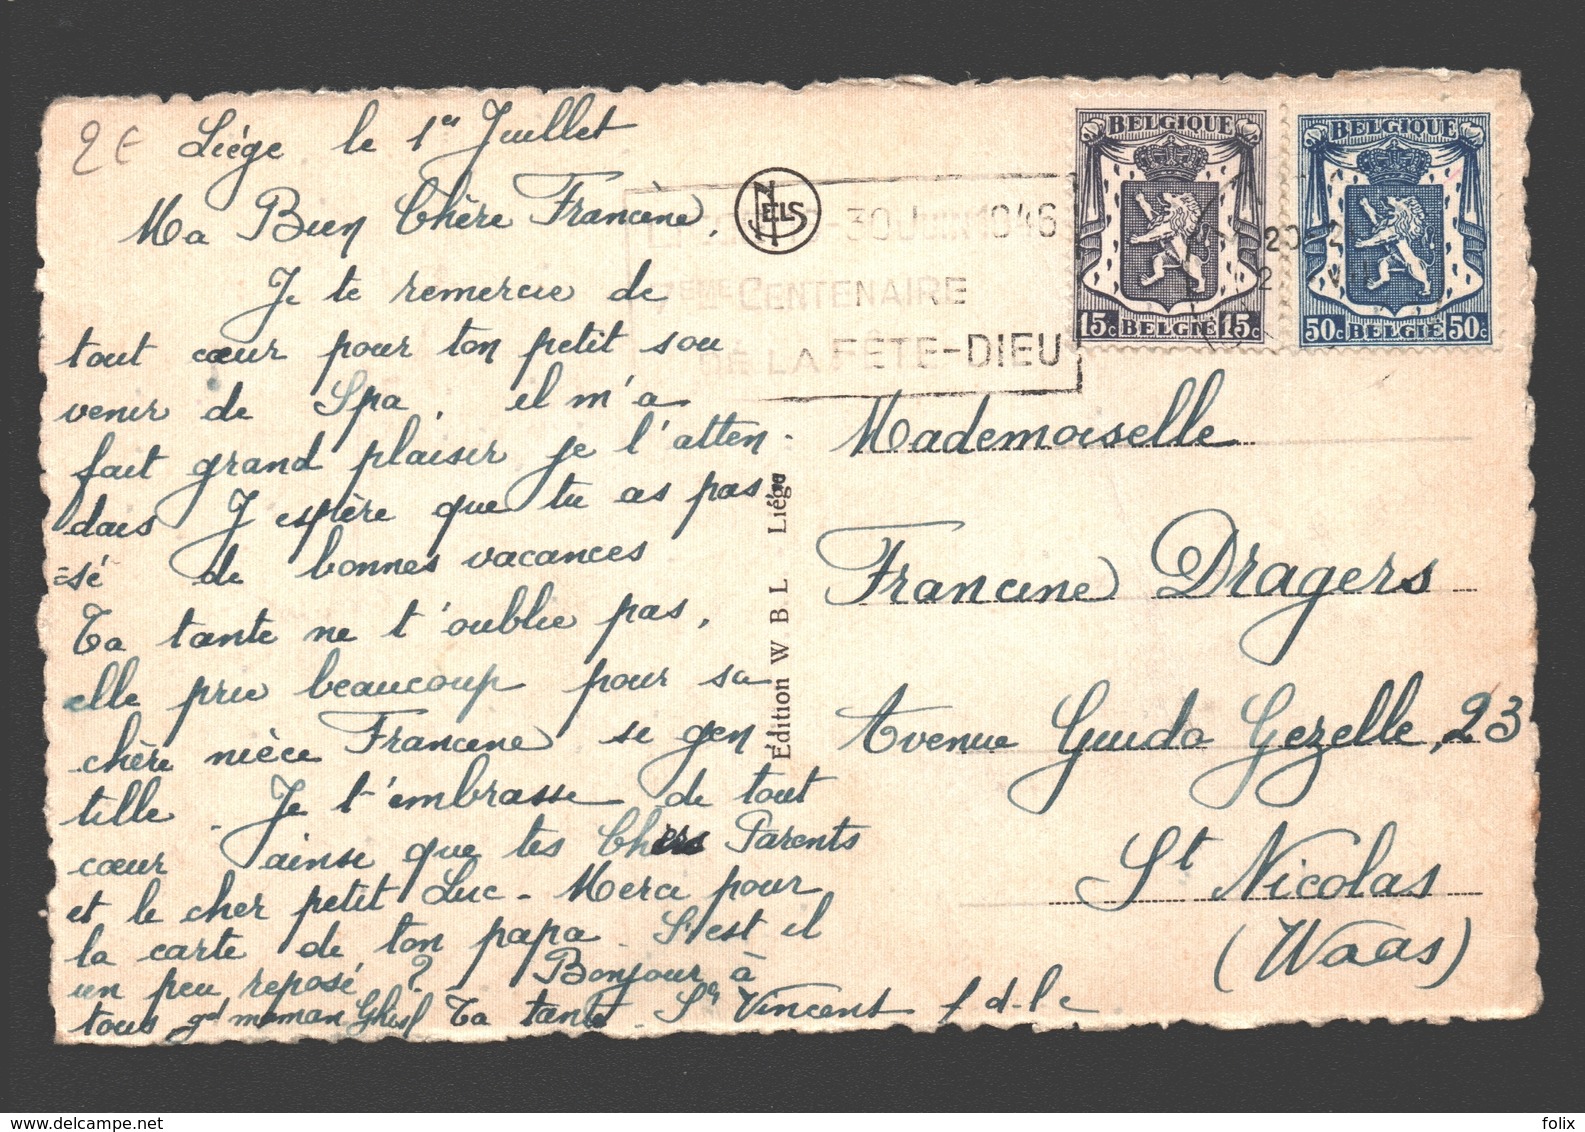 2 €
Liège le 1er Juillet
Ma Bien Chère Francine,
Je te remercie de
tout cœur pour ton petit sou
venir de Spa, il m'a
fait grand plaisir je l'atten-
dais J espère que tu as pas
=sé de bonnes vacances
Ta tante ne t'oublie pas,
elle prie beaucoup pour sa
chère nièce Francine se gen
tille. Je t'embrasse de tout
cœur ainsi que tes Chers Parents
et le cher petit Luc - Merci pour
la carte de ton papa. S'est il
un peu reposé? Bonjour à
tous gd maman Ghisl Ta tante Sr Vincent f d.l c
NELS
Édition W B L Liège
-30 JUIN 1946
7e CENTENAIRE
DE LA FÊTE-DIEU
BELGIQUE
15c BELGIË 15c
BELGIQUE
50c BELGIË 50c
Mademoiselle
Francine Dragers
Avenue Guido Gezelle, 23
St Nicolas
(Waas)
folix